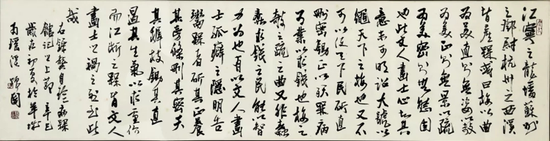 江寧之龍蟠蘇州
之鄧尉杭州之西溪
皆產梅或曰梅以曲
為美直則無姿以欹
為美正則無景以疏
為美密則無態固
也此文人畫士心知其
意未可明詔大號以
繩天下之梅也又不
可以使天下之民斫直
刪密鋤正以殀梅病
梅為業以求錢也梅之
欹之疏之曲又非蠢
蠢求錢之民能以智
力為也有以文人畫
士孤癖之隱明告
鬻梅者斫其正養
其旁條刪其密夭
其稚枝鋤其直
遏其生氣以求重價
而江浙之梅皆病文人
畫士之禍之烈至此
哉
右錄龔自珍病梅
館記 辛巳